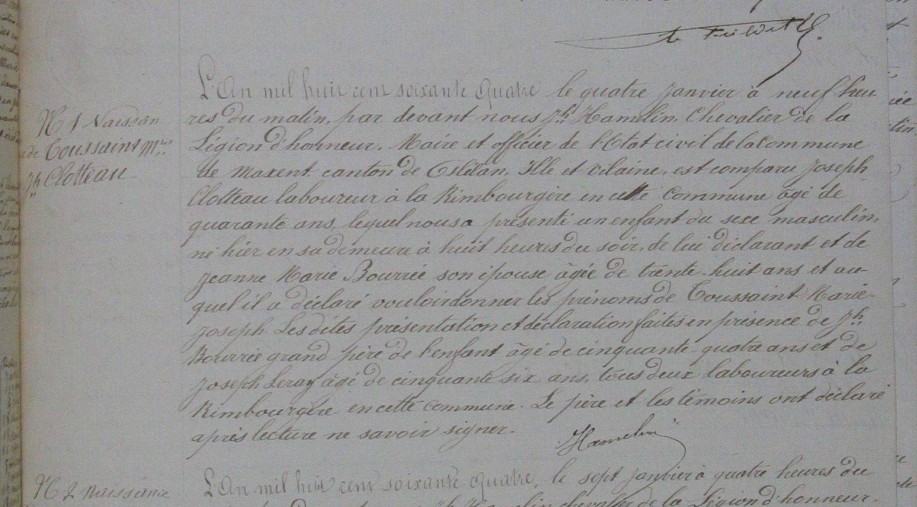 N 1 Naissan
ce Toussaint M
Jh Clotteau
L'An mil huit cent soixante quatre le quatre Janvier à neuf heu
res du matin, par devant nous Jh Hamelin, Chevalier de la
Légion d'honneur, Maire et officier de l'Etat civil de la commune
de Maxent canton de Plélan, Ille et vilaine, est comparu Joseph
Clotteau laboureur à la Rimbourgère en cette commune âgé de
quarante ans, lequel nous a présenté un enfant du sexe masculin,
né hier en sa demeure à huit heures du soir, de lui déclarant et de
Jeanne Marie Bourrée son épouse âgée de trente huit ans et au-
quel il a déclaré vouloir donner les prénoms de Toussaint Marie
Joseph. Les dites présentation et déclaration faites en présence de Jh
Bourrée grand père de l'enfant âgé de cinquante quatre ans et de
Joseph Leray âgé de cinquante six ans, tous deux laboureurs à la
Rimbourgère en cette commune. Le père et les témoins ont déclaré
après lecture ne savoir signer.
Hamelin
N 2 Naissance
L'An mil huit cent soixante quatre, le sept janvier à quatre heures du
de la Légion d'honneur.